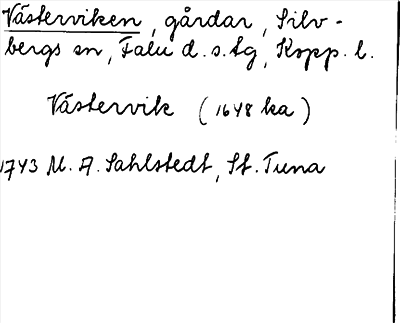 Västerviken, gårdar, Silv-
bergs sn, Falu d. s. tg, Kopp. l.
Västervik (1648 ka)
1743 M. A. Sahlstedt, St. Tuna